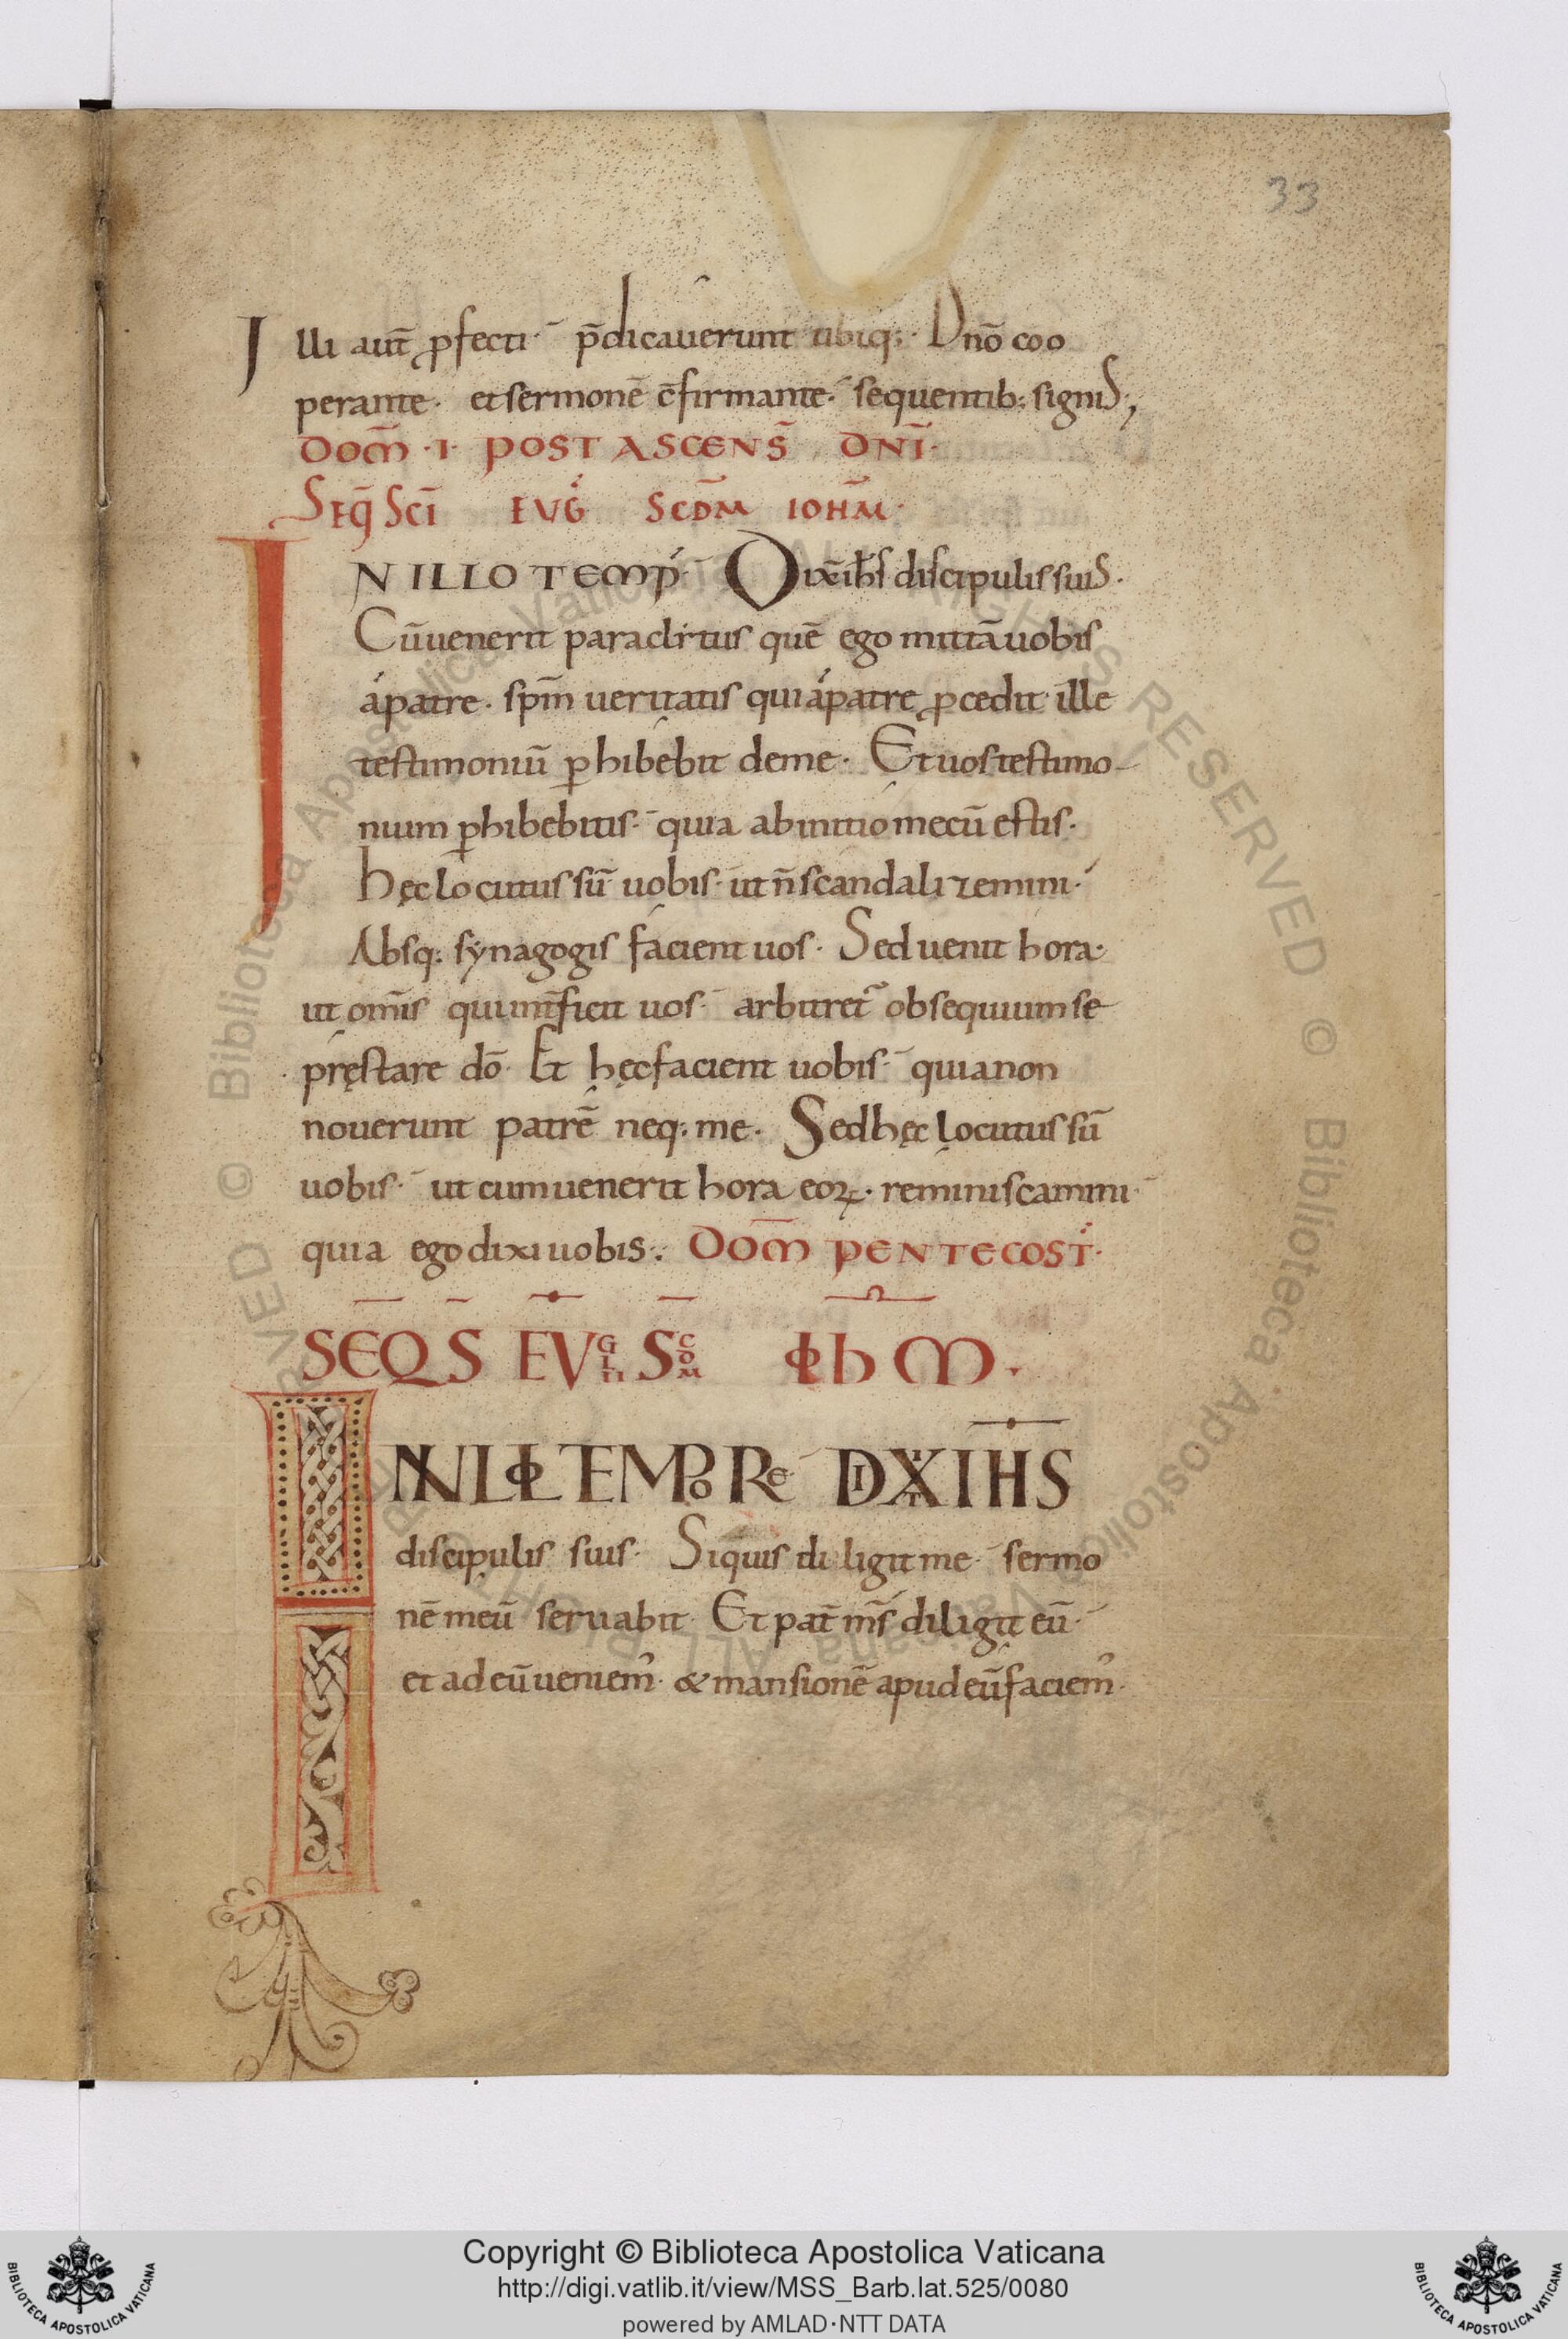 33
Illi aut̄ ꝓfecti· p̄dicauerunt ubiq;· Dnō coo
perante· et sermonē c̄firmante· sequentib; signis;
DOM̄ ·I· POST ASCENS̄ DNĪ·
SEQ̄ SCĪ EVḠ SCDM̄ IOHM̄·
IN ILLO TEMP̄· Dix̄ ihs̄ discipulis suis·
Cū uenerit paraclitus quē ego mittā uobis
a patre· sp̄m ueritatis qui a patre ꝓcedit· ille
testimoniū ꝑhibebit de me· Et uos testimo-
nium ꝑhibebitis· quia ab initio mecū estis·
hęc locutus sū uobis· ut n̄ scandalizemini·
Absq; synagogis facient uos· Sed uenit hora·
ut om̄is qui int̄ficit uos· arbitret᷑ obsequium se
pręstare dō· Et hęc facient uobis· quia non
nouerunt patrē neq; me· Sed hęc locutus sū
uobis· ut cum uenerit hora eoꝝ· reminiscamini·
quia ego dixi uobis:· DOM̄ PENTECOST̄·
SEQ S EVGLII SCDM IOHM·
IN ILLO TEMPORE DIXIT IHS
discipulis suis· Siquis diligit me· sermo
nē meū seruabit· Et pat̄ ms̄ diligit eū·
et ad eū ueniem᾽· & mansionē apud eū faciem᾽·
Copyright © Biblioteca Apostolica Vaticana
http://digi.vatlib.it/view/MSS_Barb.lat.525/0080
powered by AMLAD·NTT DATA
BIBLIOTECA APOSTOLICA VATICANA
BIBLIOTECA APOSTOLICA VATICANA